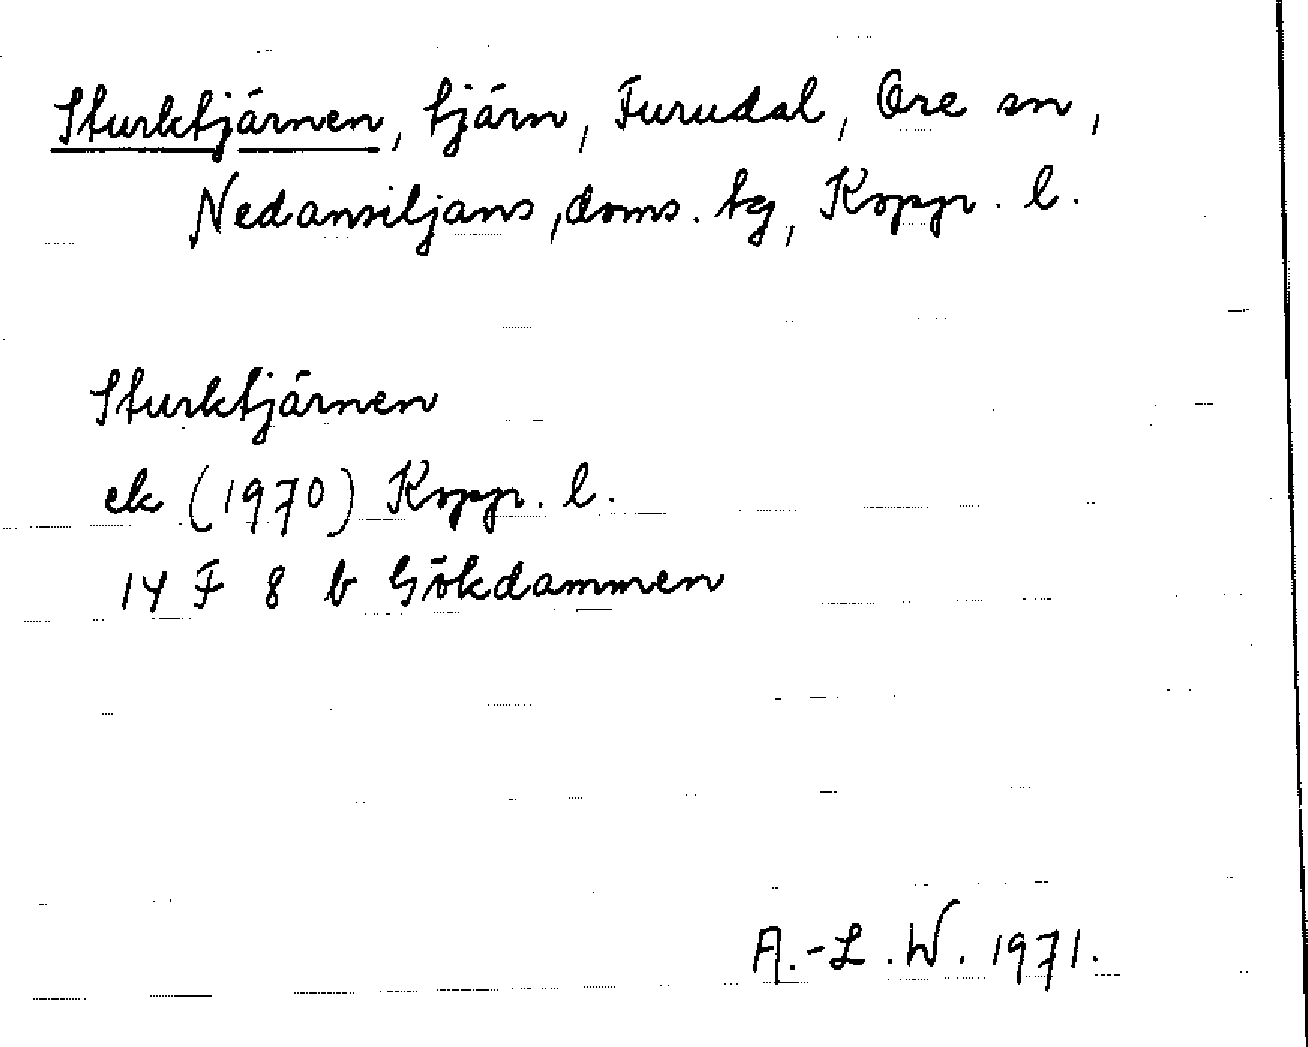 Sturktjärnen, tjärn, Furudal, Ore sn,
Nedansiljans, doms. tg, Koppr. l.
Sturktjärnen
ek (1970) Koppr. l.
14 F 8 b Gökdammen
A.-L.W. 1971.